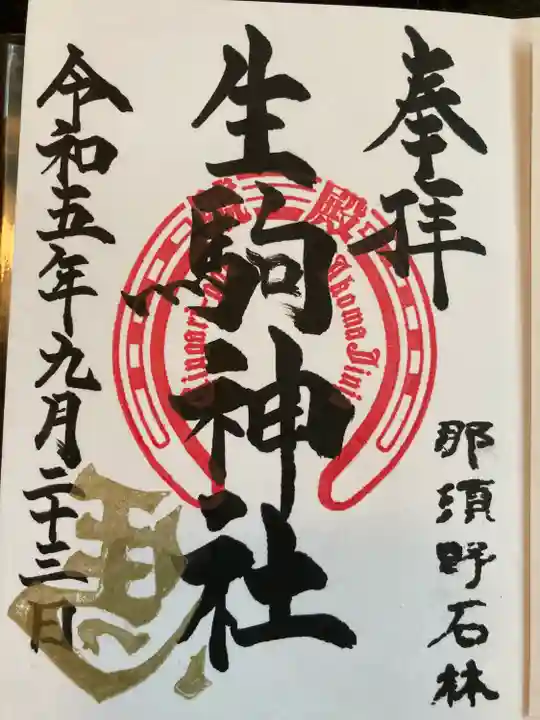 奉拝
那須野石林
生駒神社
令和五年九月二十三日
殿
Akoma Jinj